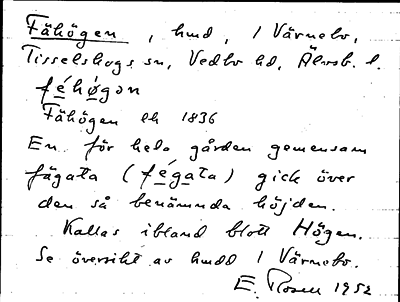 Fähögen, hmd, 1 Värnebo,
Tisselskogs sn, Vedbo hd, Älvsb. l.
féhø̀gən
Fähögen lh 1836
En för hela gården gemensam
fägata (fégata) gick över
den så benämnda höjden.
Kallas ibland blott Högen.
Se översikt av hmdd 1 Värnebo.
E. Rosen 1952